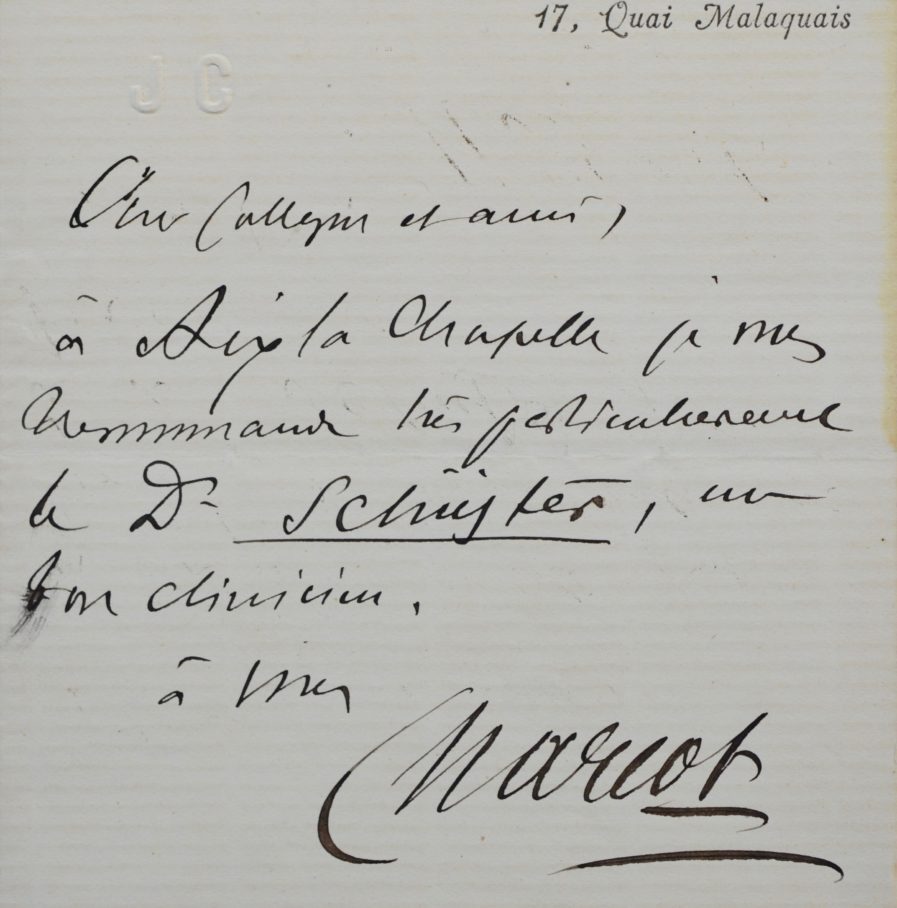 17, Quai Malaquais
J C
Cher Collegue et ami,
à Aix la Chapelle je vous
recommande très particulierement
le Dr Schüster, un
bon clinicien.
à vous
Charcot